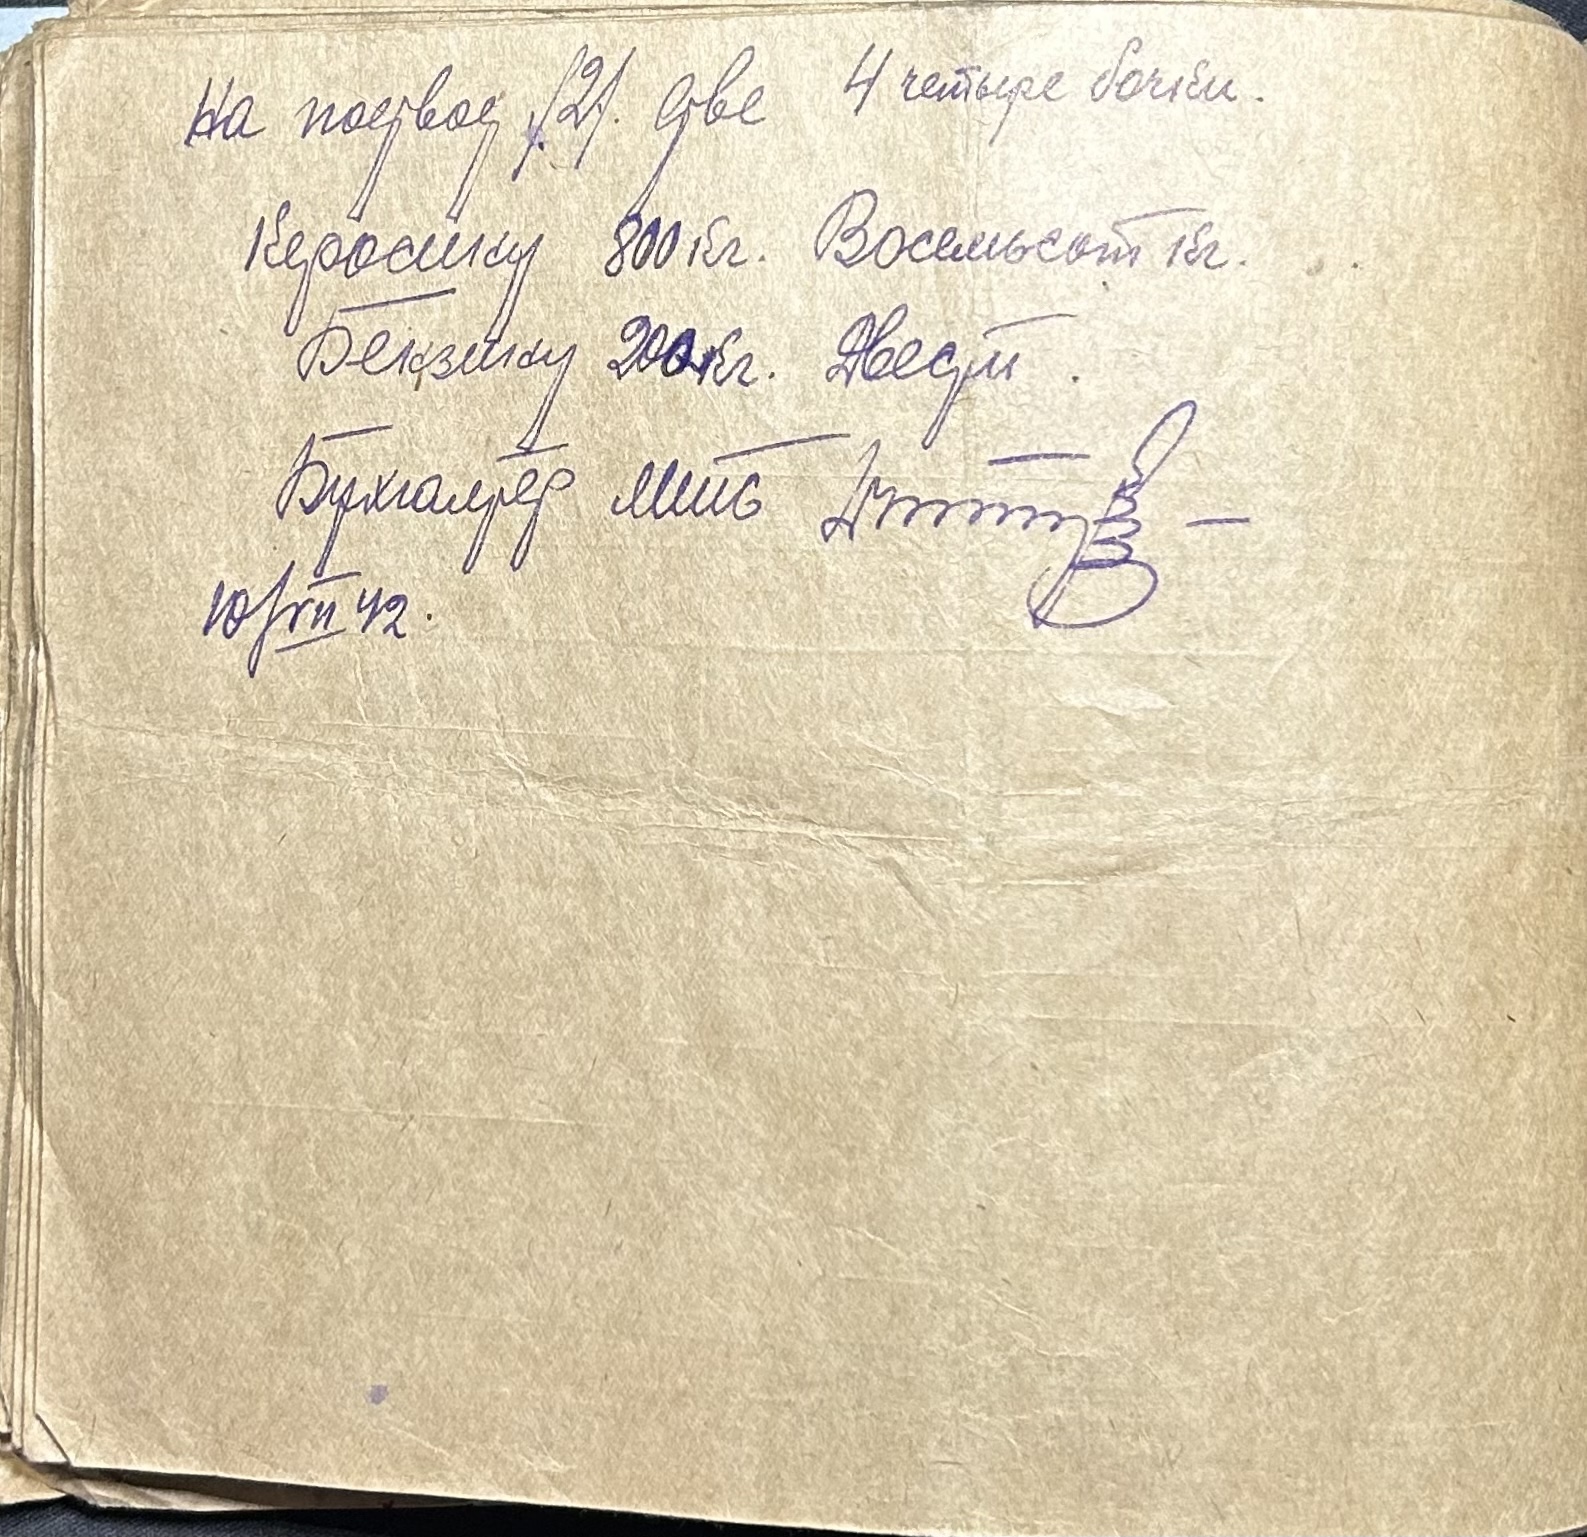 На подвод /2/. две 4 четыре бочки.
Керосину 800 кг. Восемьсот кг.
Бензину 200 кг. Двести.
Бухгалтер
10/VII 42.